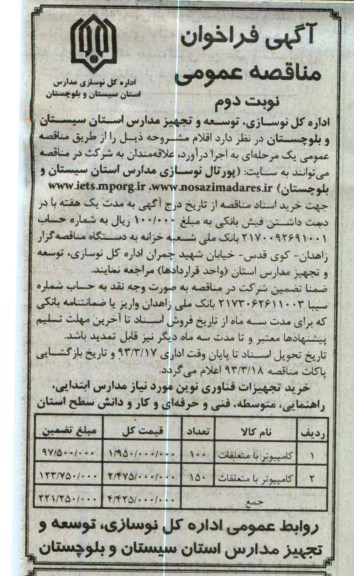 آگهی فراخوان
مناقصه عمومی
نوبت دوم
اداره کل نوسازی مدارس
استان سیستان و بلوچستان
اداره کل نوسازی، توسعه و تجهیز مدارس استان سیستان
و بلوچستان در نظر دارد اقلام مشروحه ذیل را از طریق مناقصه
عمومی یک مرحله‌ای به اجرا درآورد، علاقه‌مندان به شرکت در مناقصه
می‌توانند به سایت: (پورتال نوسازی مدارس استان سیستان و
بلوچستان) www.iets.mporg.ir ،www.nosazimadares.ir
جهت خرید اسناد مناقصه از تاریخ درج آگهی به مدت یک هفته با در
دست داشتن فیش بانکی به مبلغ ۱۰۰/۰۰۰ ریال به شماره حساب
۲۱۷۰۰۹۲۶۹۱۰۰۱ بانک ملی شعبه خزانه به دستگاه مناقصه‌گزار
زاهدان- کوی قدس- خیابان شهید چمران اداره کل نوسازی، توسعه
و تجهیز مدارس استان (واحد قراردادها) مراجعه نمایند.
ضمنا تضمین شرکت در مناقصه به صورت وجه نقد به حساب شماره
سیبا ۲۱۷۳۰۶۲۶۱۱۰۰۳ بانک ملی زاهدان واریز یا ضمانتنامه بانکی
که برای مدت سه ماه از تاریخ فروش اسناد تا آخرین مهلت تسلیم
پیشنهادها معتبر و تا مدت سه ماه دیگر نیز قابل تمدید باشد.
تاریخ تحویل اسناد تا پایان وقت اداری ۹۳/۳/۱۷ و تاریخ بازگشایی
پاکات مناقصه ۹۳/۳/۱۸ اعلام می‌گردد.
خرید تجهیزات فناوری نوین مورد نیاز مدارس ابتدایی،
راهنمایی، متوسطه، فنی و حرفه‌ای و کار و دانش سطح استان
ردیف نام کالا تعداد قیمت کل مبلغ تضمین
۱ کامپیوتر با متعلقات ۱۰۰ ۱/۹۵۰/۰۰۰/۰۰۰ ۹۷/۵۰۰/۰۰۰
۲ کامپیوتر با متعلقات ۱۵۰ ۲/۴۷۵/۰۰۰/۰۰۰ ۱۲۳/۷۵۰/۰۰۰
جمع ۴/۴۲۵/۰۰۰/۰۰۰ ۲۲۱/۲۵۰/۰۰۰
روابط عمومی اداره کل نوسازی، توسعه و
تجهیز مدارس استان سیستان و بلوچستان